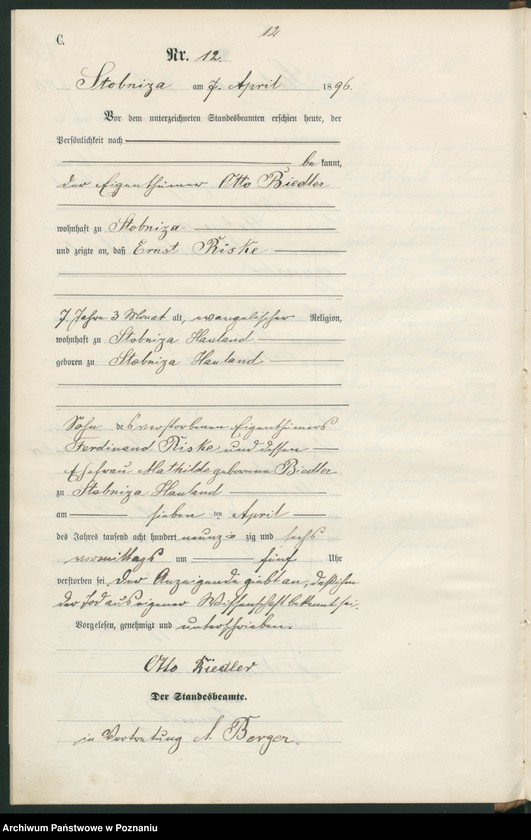 12
C.
Nr. 12.
Stobniza am 7. April 1896.
Vor dem unterzeichneten Standesbeamten erschien heute, der
Persönlichkeit nach
be kannt,
der Eigenthümer Otto Biedler
wohnhaft zu Stobniza
und zeigte an, daß Ernst Riske
7 Jahre 3 Monat alt, evangelischer Religion,
wohnhaft zu Stobniza Hauland
geboren zu Stobniza Hauland
Sohn des verstorbenen Eigenthümers
Ferdinand Riske und dessen
Ehefrau Mathilde geborene Biedler
zu Stobniza Hauland
am sieben ten April
des Jahres tausend acht hundert neunzig und sechs
vormittags um fünf Uhr
verstorben sei. Der Anzeigende giebt an, daß ihm
der Tod aus eigener Wissenschaft bekannt sei.
Vorgelesen, genehmigt und unterschrieben.
Otto Biedler
Der Standesbeamte.
in Vertretung A. Berger.
Archiwum Państwowe w Poznaniu